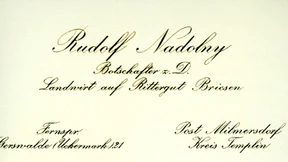 Rudolf Nadolny
Botschafter z. D.
Landwirt auf Rittergut Briesen
Fernspr.
Gerswalde (Uckermark) 121
Post Milmersdorf
Kreis Templin